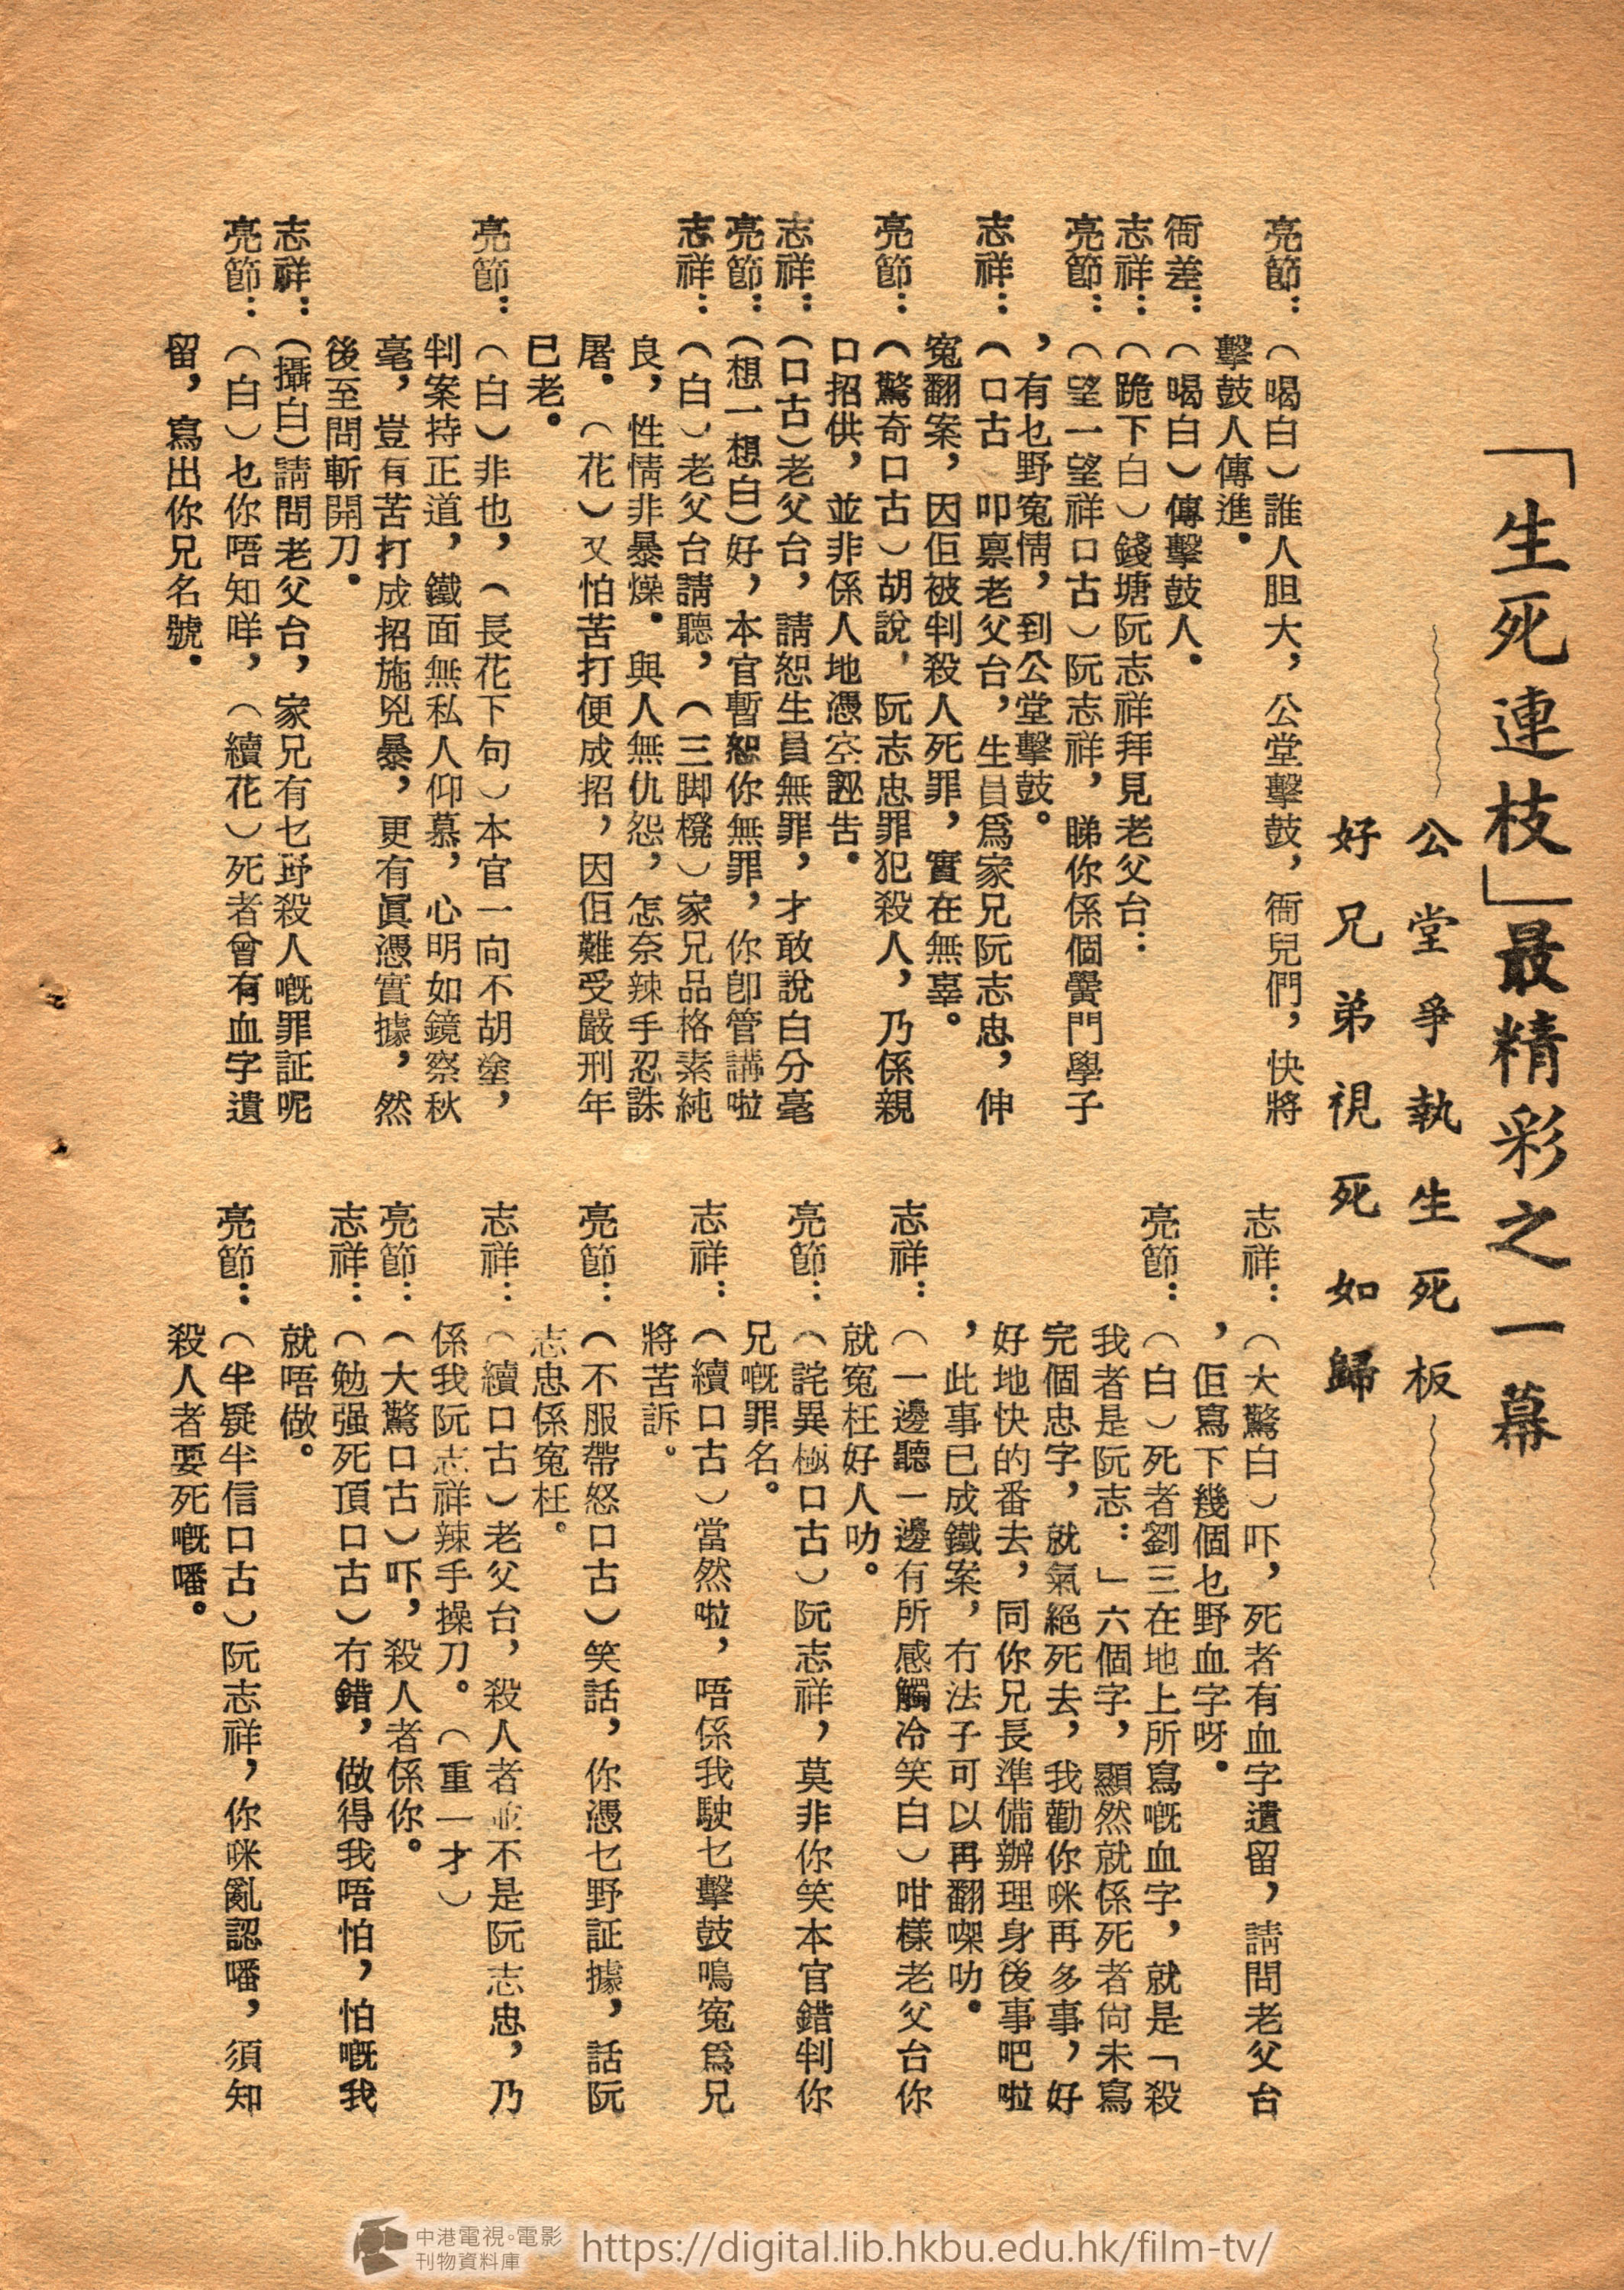 「生死連枝」最精彩之一幕
公堂爭執生死板
好兄弟視死如歸
亮節：（喝白）誰人胆大，公堂擊鼓，衙兒們，快將
擊鼓人傳進．
衙差：（喝白）傳擊鼓人．
志祥：（跪下白）錢塘阮志祥拜見老父台：
亮節：（望一望祥口古）阮志祥，睇你係個黌門學子
，有乜野寃情，到公堂擊鼓。
志祥：（口古　叩禀老父台，生員爲家兄阮志忠，伸
寃翻案，因佢被判殺人死罪，實在無辜。
亮節：（驚奇口古）胡說，阮志忠罪犯殺人，乃係親
口招供，並非係人地憑空誣告．
志祥：（口古）老父台，請恕生員無罪，才敢說白分毫
亮節：（想一想白）好，本官暫恕你無罪，你卽管講啦
志祥：（白）老父台請聽，（三脚櫈）家兄品格素純
良，性情非暴燥．與人無仇怨，怎奈辣手忍誅
屠．（花）又怕苦打便成招，因佢難受嚴刑年
已老。
亮節：（白）非也，（長花下句）本官一向不胡塗，
判案持正道，鐵面無私人仰慕，心明如鏡察秋
毫，豈有苦打成招施兇暴，更有眞憑實據，然
後至問斬開刀．
志祥：（攝白）請問老父台，家兄有乜野殺人嘅罪証呢
亮節：（白）乜你唔知咩，（續花）死者曾有血字遺
留，寫出你兄名號．
志祥：（大驚白）吓，死者有血字遺留，請問老父台
，佢寫下幾個乜野血字呀．
亮節：（白）死者劉三在地上所寫嘅血字，就是「殺
我者是阮志：」六個字，顯然就係死者尙未寫
完個忠字，就氣絕死去，我勸你咪再多事，好
好地快的番去，同你兄長準備辦理身後事吧啦
，此事已成鐵案，冇法子可以再翻㗎叻．
志祥：（一邊聽一邊有所感觸冷笑白）咁樣老父台你
就寃枉好人叻。
亮節：（詫異極口古）阮志祥，莫非你笑本官錯判你
兄嘅罪名。
志祥：（續口古）當然啦，唔係我駛乜擊鼓鳴寃爲兄
將苦訴。
亮節：（不服帶怒口古）笑話，你憑乜野証據，話阮
志忠係寃枉。
志祥：（續口古）老父台，殺人者並不是阮志忠，乃
係我阮志祥辣手操刀。（重一才）
亮節：（大驚口古）吓，殺人者係你。
志祥：（勉强死頂口古）冇錯，做得我唔怕，怕嘅我
就唔做。
亮節：（半疑半信口古）阮志祥，你咪亂認噃，須知
殺人者要死嘅噃。
中港電視。電影
刊物資料庫
https://digital.lib.hkbu.edu.hk/film-tv/